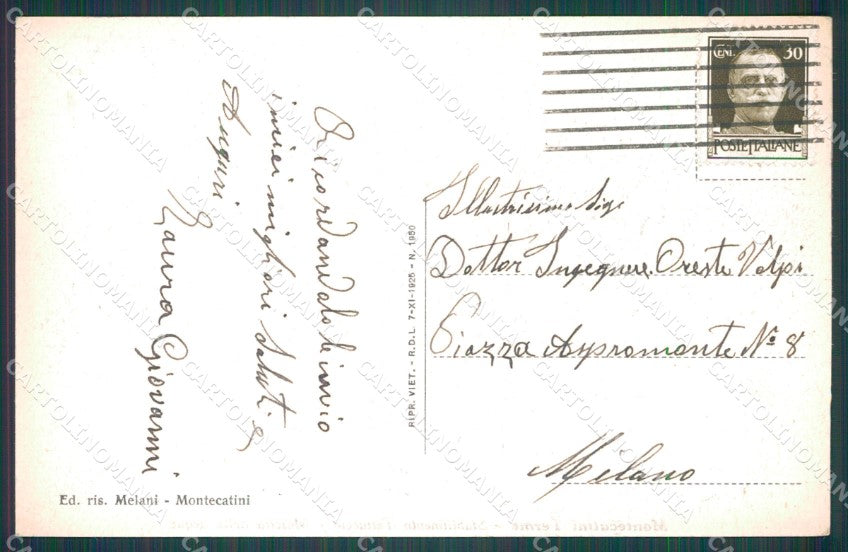 CENT. 30
POSTE ITALIANE
Ricordandolo invio
i miei migliori saluti e
Auguri
Laura Giovanni
Illustrissimo Sigr
Dottor Ingegnere Oreste Volpi
Piazza Aspromonte No 8
Milano
RIPR. VIET. - R.D.L. 7-XI-1925 - N. 1950
Ed. ris. Melani - Montecatini
CARTOLINOMANIA